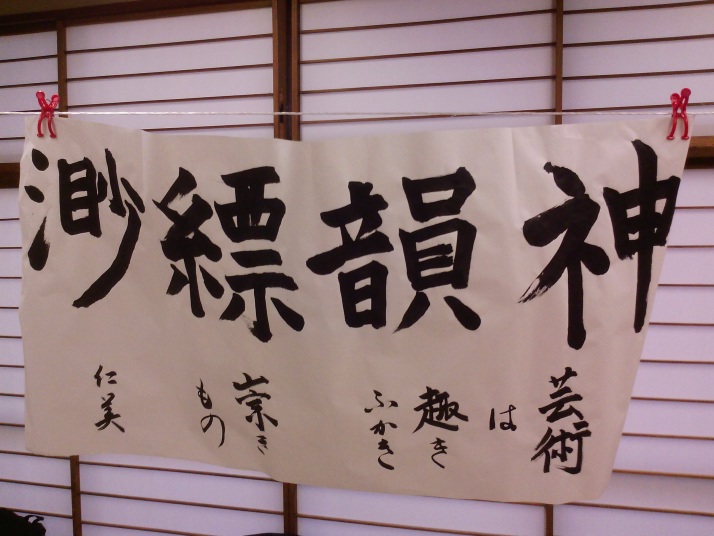 神韻縹渺
芸術
は
趣き
ふかき
崇き
もの
仁美